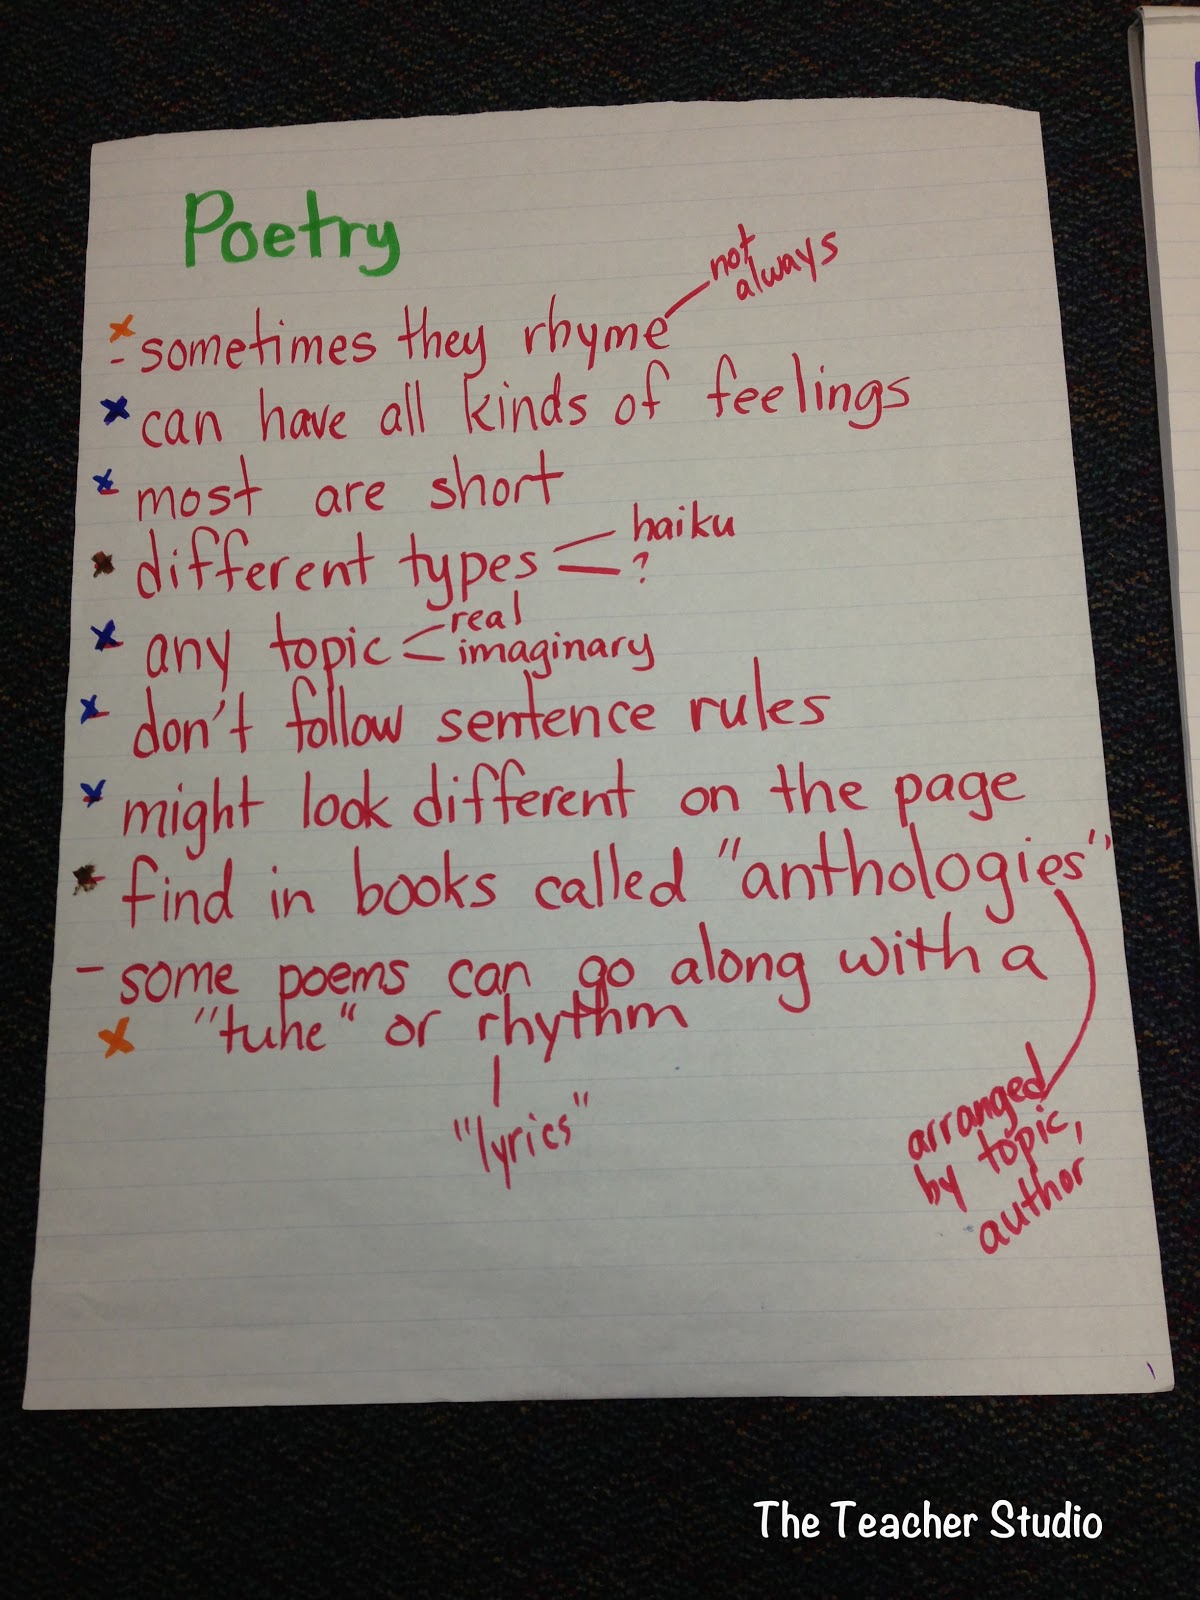 Poetry
not
always
- sometimes they rhyme
can have all kinds of feelings
- most are short
different types
haiku
?
- any topic
real
imaginary
- don't follow sentence rules
- might look different on the page
- find in books called "anthologies"
- some poems can go along with a
"tune" or rhythm
"lyrics"
arranged
by topic,
author
The Teacher Studio